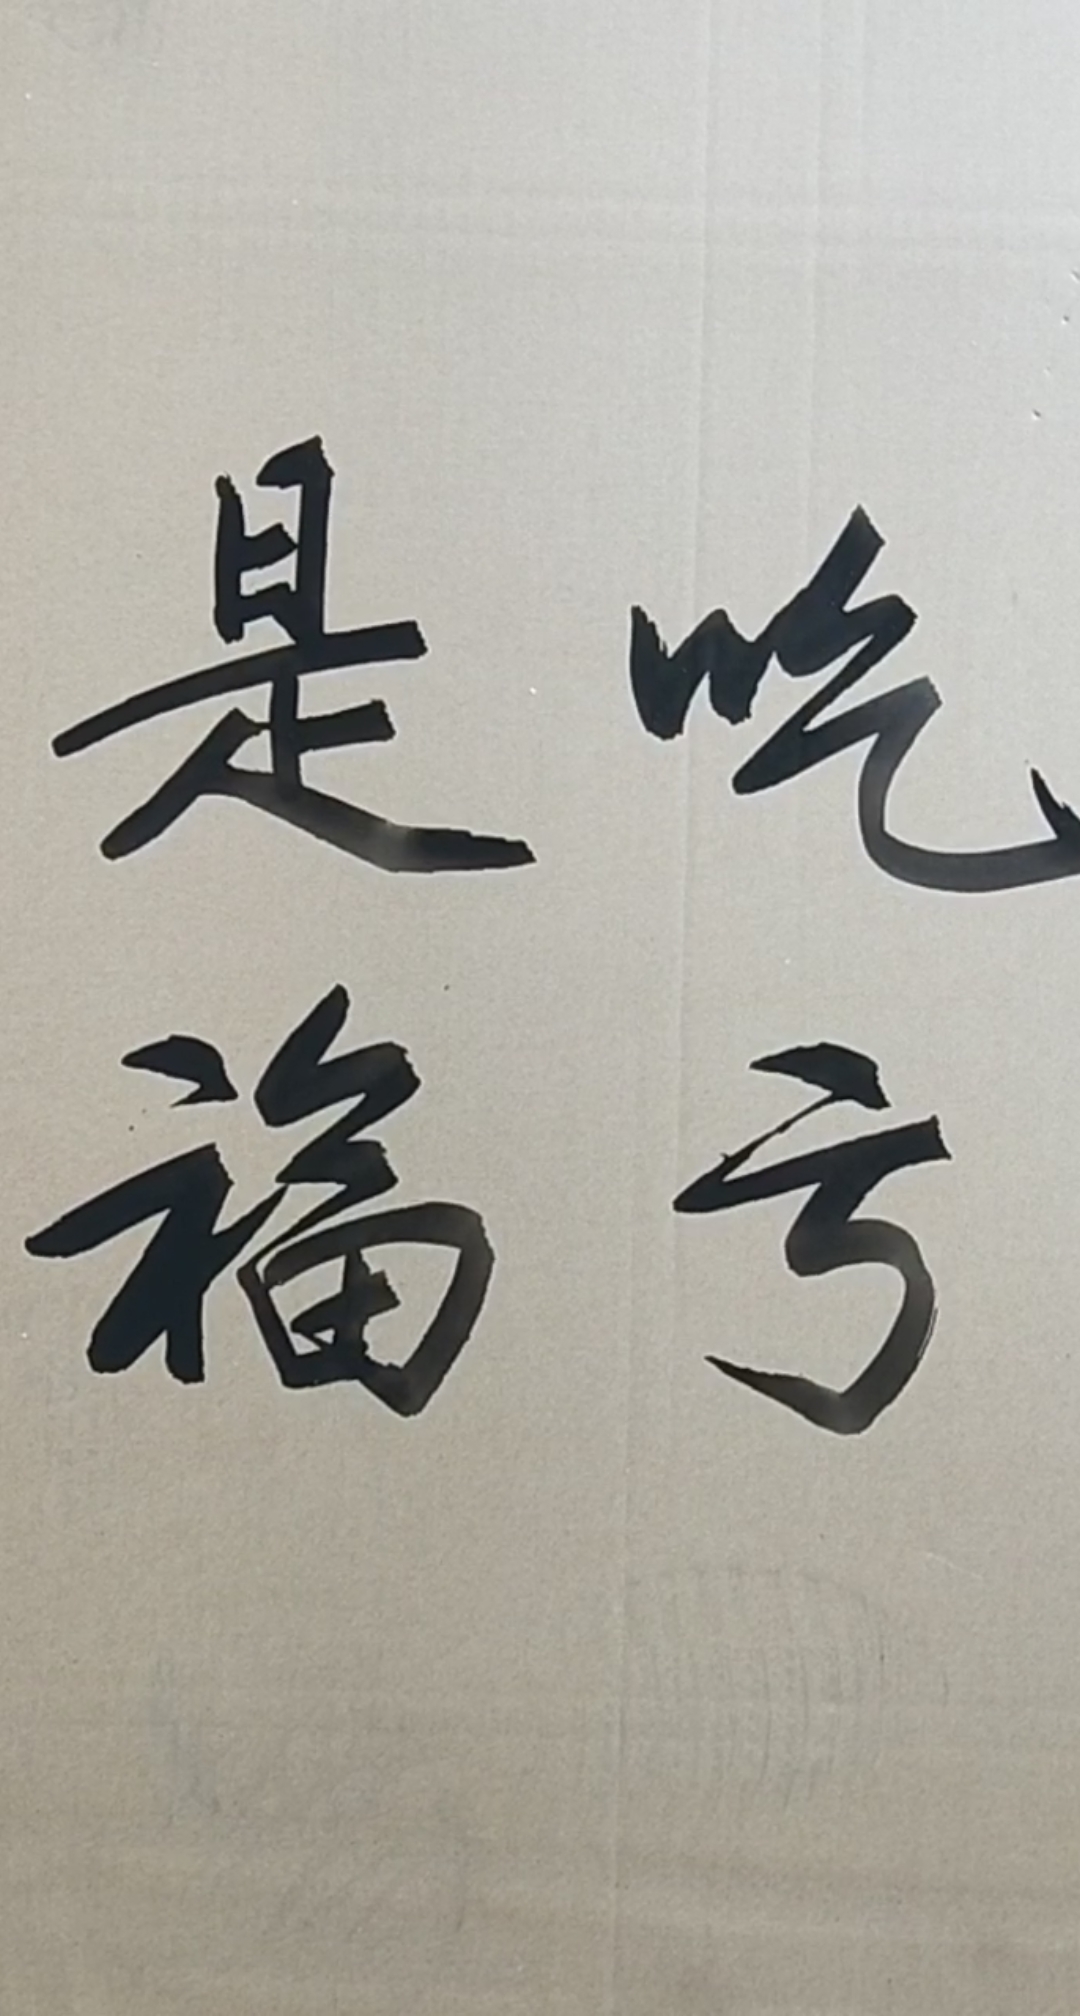 吃亏
是福